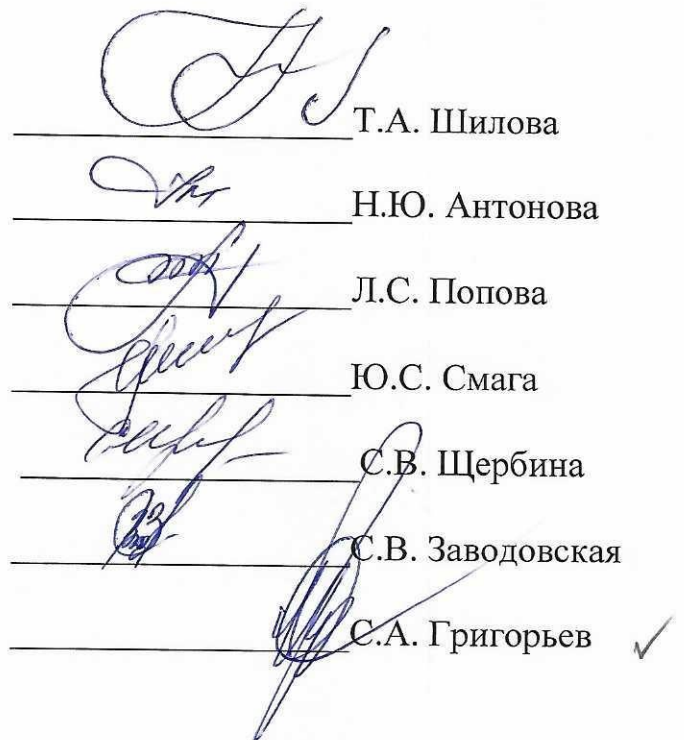 Т.А. Шилова
Н.Ю. Антонова
Л.С. Попова
Ю.С. Смага
С.В. Щербина
С.В. Заводовская
С.А. Григорьев